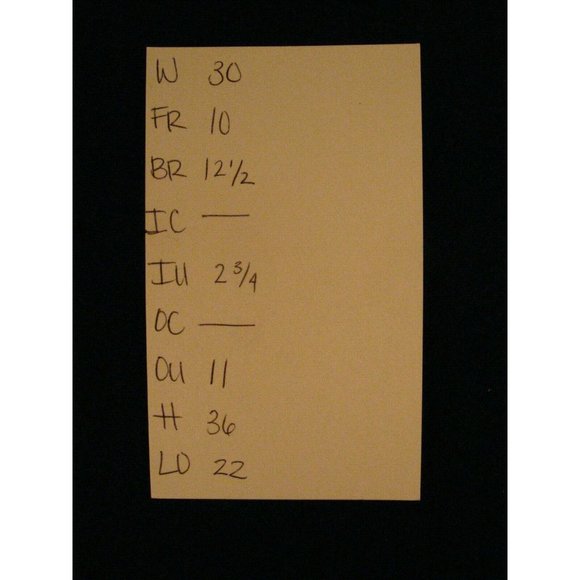 W 30
FR 10
BR 12 1/2
IC —
IU 2 3/4
OC —
OU 11
H 36
LO 22